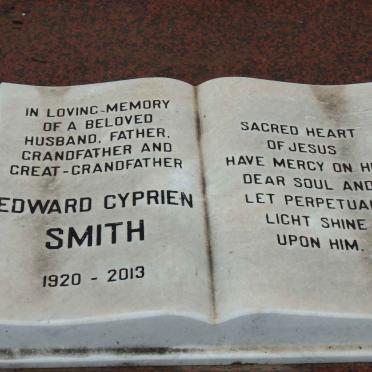 IN LOVING-MEMORY
OF A BELOVED
HUSBAND, FATHER,
GRANDFATHER AND
GREAT-GRANDFATHER
EDWARD CYPRIEN
SMITH
1920 - 2013
SACRED HEART
OF JESUS
HAVE MERCY ON
DEAR SOUL AND
LET PERPETUAL
LIGHT SHINE
UPON HIM.